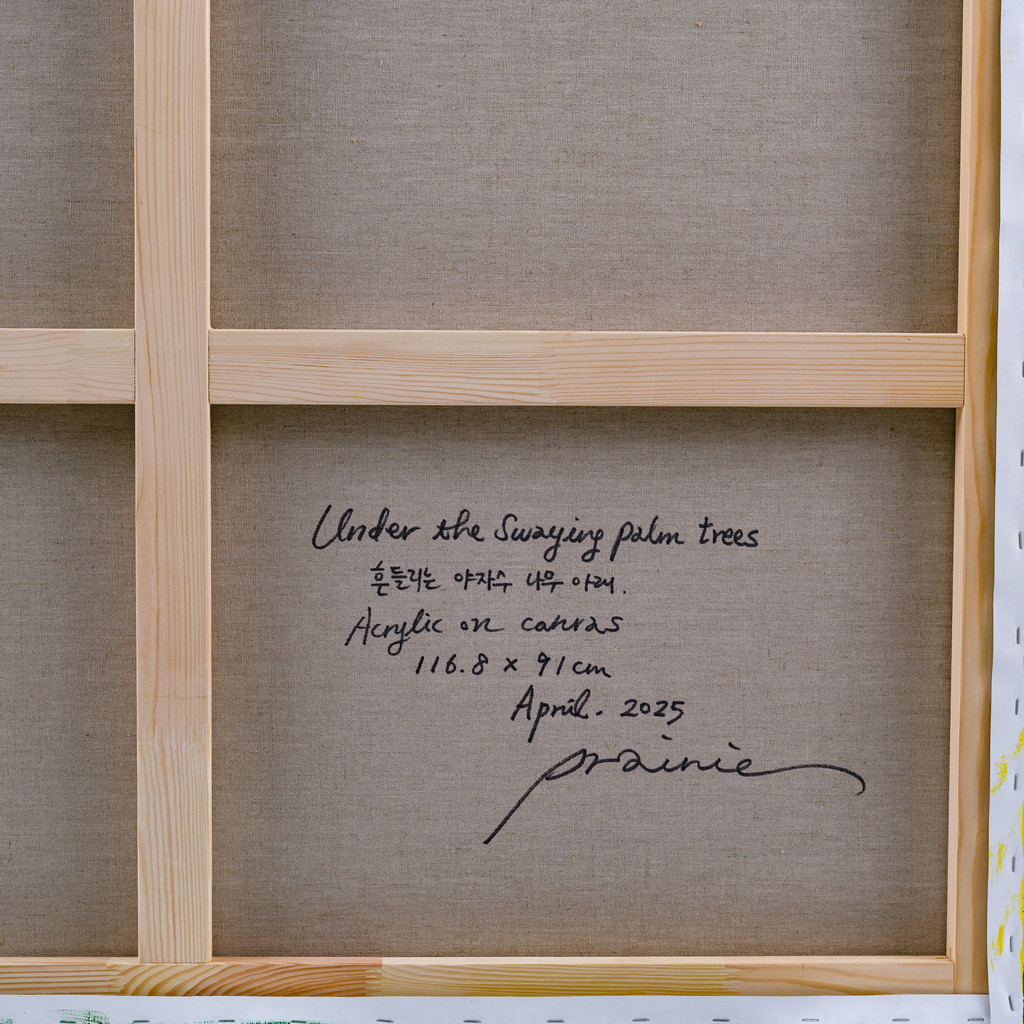 Under the Swaying palm trees
흔들리는 야자수 나무 아래.
Acrylic on canvas
116.8 x 91cm
April. 2025
prainie